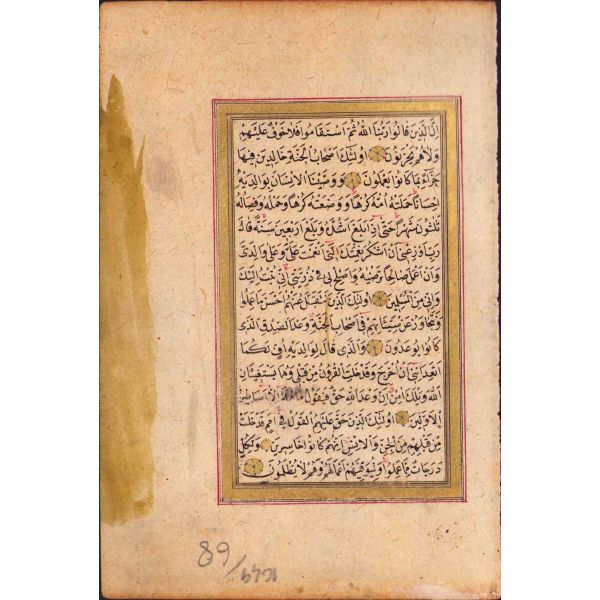 اِنَّ الَّذِينَ قَالُوا رَبُّنَا اللّٰهُ ثُمَّ اسْتَقَامُوا فَلَا خَوْفٌ عَلَيْهِمْ
وَلَا هُمْ يَحْزَنُونَ اُولٰئِكَ اَصْحَابُ الْجَنَّةِ خَالِدِينَ فِيهَا
جَزَاءً بِمَا كَانُوا يَعْمَلُونَ وَوَصَّيْنَا الْاِنْسَانَ بِوَالِدَيْهِ
اِحْسَانًا حَمَلَتْهُ اُمُّهُ كُرْهًا وَوَضَعَتْهُ كُرْهًا وَحَمْلُهُ وَفِصَالُهُ
ثَلٰثُونَ شَهْرًا حَتّٰى اِذَا بَلَغَ اَشُدَّهُ وَبَلَغَ اَرْبَعِينَ سَنَةً قَالَ
رَبِّ اَوْزِعْنِى اَنْ اَشْكُرَ نِعْمَتَكَ الَّتِى اَنْعَمْتَ عَلَىَّ وَعَلٰى وَالِدَىَّ
وَاَنْ اَعْمَلَ صَالِحًا تَرْضٰيهُ وَاَصْلِحْ لِى فِى ذُرِّيَّتِى اِنِّى تُبْتُ اِلَيْكَ
وَاِنِّى مِنَ الْمُسْلِمِينَ اُولٰئِكَ الَّذِينَ نَتَقَبَّلُ عَنْهُمْ اَحْسَنَ مَا عَمِلُوا
وَنَتَجَاوَزُ عَنْ سَيِّئَاتِهِمْ فِى اَصْحَابِ الْجَنَّةِ وَعْدَ الصِّدْقِ الَّذِى
كَانُوا يُوعَدُونَ وَالَّذِى قَالَ لِوَالِدَيْهِ اُفٍّ لَكُمَا
اَتَعِدَانِنِى اَنْ اُخْرَجَ وَقَدْ خَلَتِ الْقُرُونُ مِنْ قَبْلِى وَهُمَا يَسْتَغِيثَانِ
اللّٰهَ وَيْلَكَ اٰمِنْ اِنَّ وَعْدَ اللّٰهِ حَقٌّ فَيَقُولُ مَا هٰذَا اِلَّا اَسَاطِيرُ
الْاَوَّلِينَ اُولٰئِكَ الَّذِينَ حَقَّ عَلَيْهِمُ الْقَوْلُ فِى اُمَمٍ قَدْ خَلَتْ
مِنْ قَبْلِهِمْ مِنَ الْجِنِّ وَالْاِنْسِ اِنَّهُمْ كَانُوا خَاسِرِينَ وَلِكُلٍّ
دَرَجَاتٌ مِمَّا عَمِلُوا وَلِيُوَفِّيَهُمْ اَعْمَالَهُمْ وَهُمْ لَا يُظْلَمُونَ